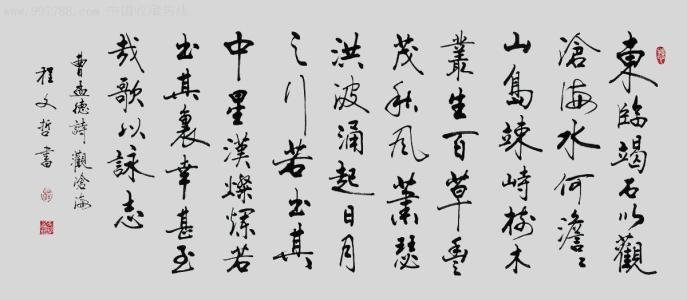 www.997788.com 中国收藏热线
東臨竭石以觀
滄海水何澹〻
山島竦峙樹木
叢生百草豐
茂秋風蕭瑟
洪波涌起日月
之行若出其
中星漢燦爛若
出其裏幸甚至
哉歌以詠志
曹孟德詩觀滄海
程文哲書